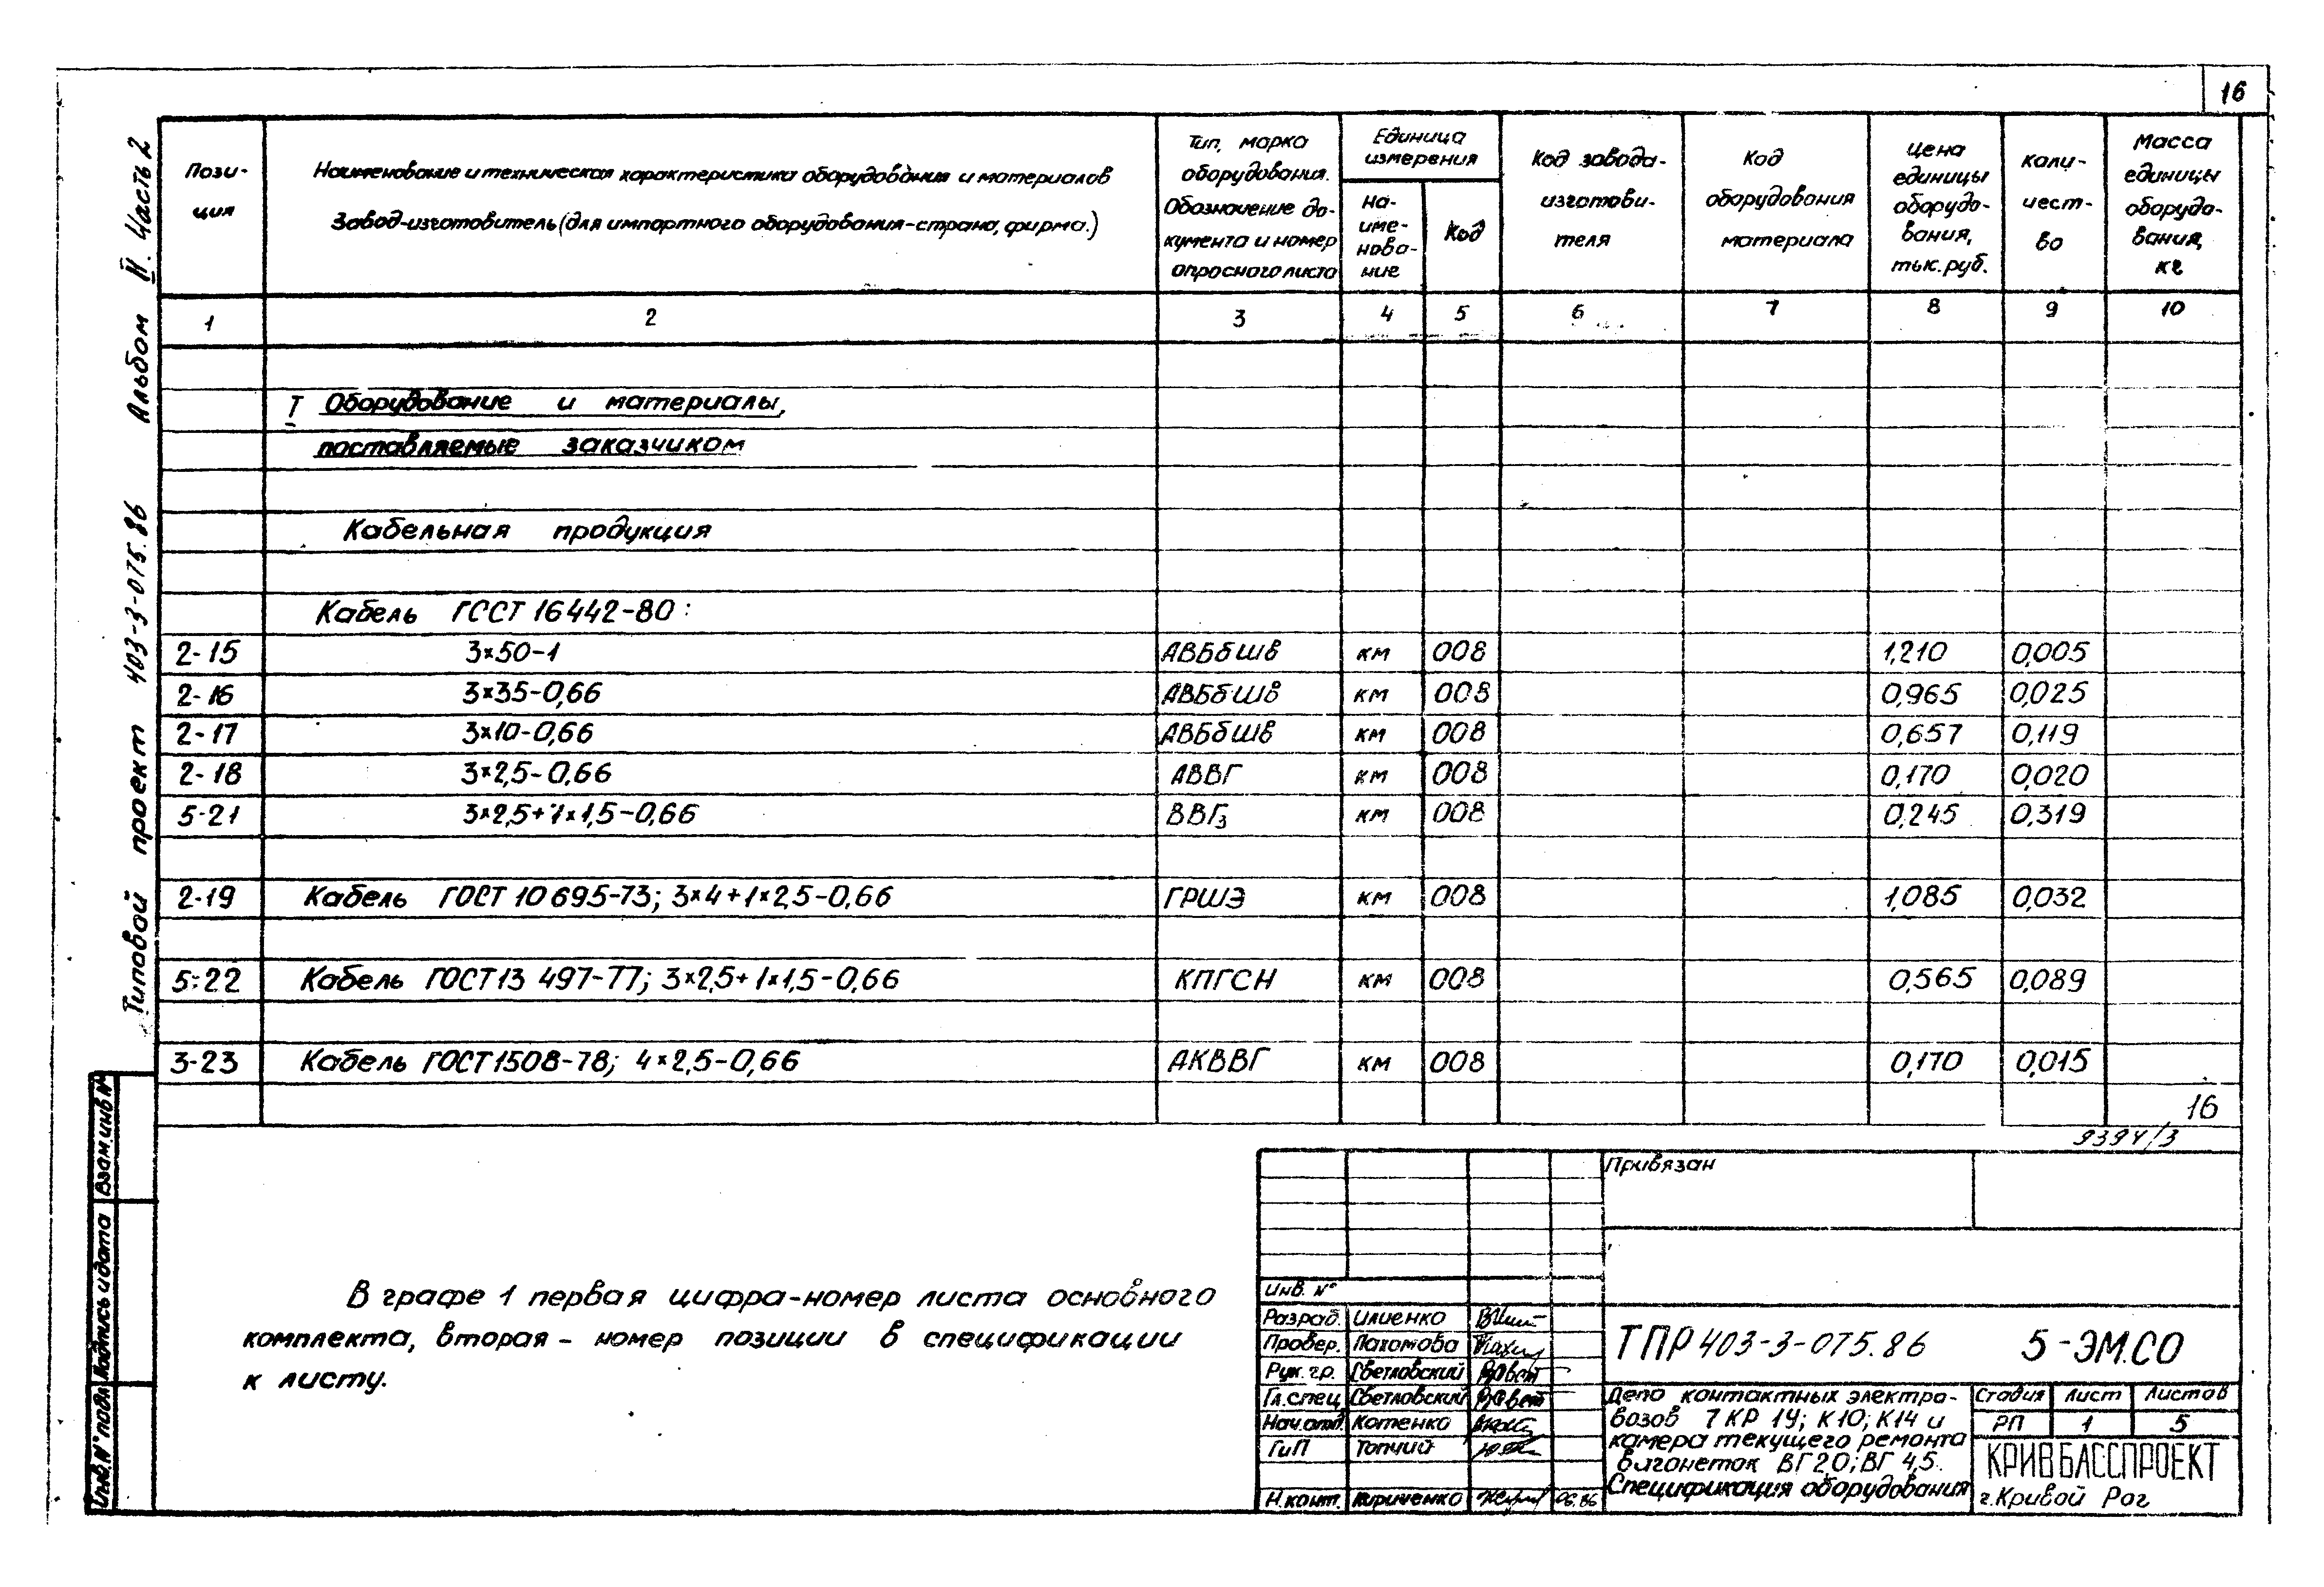 16
Типовой проект 403-3-075.86 Альбом II. Часть 2
Пози-
ция
Наименование и техническая характеристика оборудования и материалов
Завод-изготовитель (для импортного оборудования-страна, фирма.)
Тип, марка
оборудования.
Обозначение до-
кумента и номер
опросного листа
Единица
измерения
На-
име-
нова-
ние
Код
Код завода-
изготови-
теля
Код
оборудования
материала
Цена
единицы
оборудо-
вания,
тыс. руб.
Коли-
чест-
во
Масса
единицы
оборудо-
вания,
кг
1 2 3 4 5 6 7 8 9 10
I Оборудование и материалы,
поставляемые заказчиком
Кабельная продукция
Кабель ГОСТ 16442-80:
2-15 3×50-1 АВБбШв км 008 1,210 0,005
2-16 3×35-0,66 АВБбШв км 008 0,965 0,025
2-17 3×10-0,66 АВБбШв км 008 0,657 0,119
2-18 3×2,5-0,66 АВВГ км 008 0,170 0,020
5-21 3×2,5+1×1,5-0,66 ВВГз км 008 0,245 0,319
2-19 Кабель ГОСТ 10695-73; 3×4+1×2,5-0,66 ГРШЭ км 008 1,085 0,032
5-22 Кабель ГОСТ 13 497-77; 3×2,5+1×1,5-0,66 КПГСН км 008 0,565 0,089
3-23 Кабель ГОСТ 1508-78; 4×2,5-0,66 АКВВГ км 008 0,170 0,015
16
9394/3
В графе 1 первая цифра-номер листа основного
комплекта, вторая - номер позиции в спецификации
к листу.
Взам. инв №
Подпись и дата
Инв. № подл.
Привязан
Инв. №
Разраб. Илиенко
Провер. Пахомова
Рук. гр. Светловский
Гл. спец. Светловский
Нач. отд. Котенко
ГиП Топчий
Н. конт. Кириченко 06.86
ТПР 403-3-075.86 5-ЭМ.СО
Депо контактных электро-
возов 7КР 1У; К10; К14 и
камера текущего ремонта
вагонеток ВГ 2.0; ВГ 4,5.
Спецификация оборудования
Стадия Лист Листов
РП 1 5
КРИВБАССПРОЕКТ
г. Кривой Рог